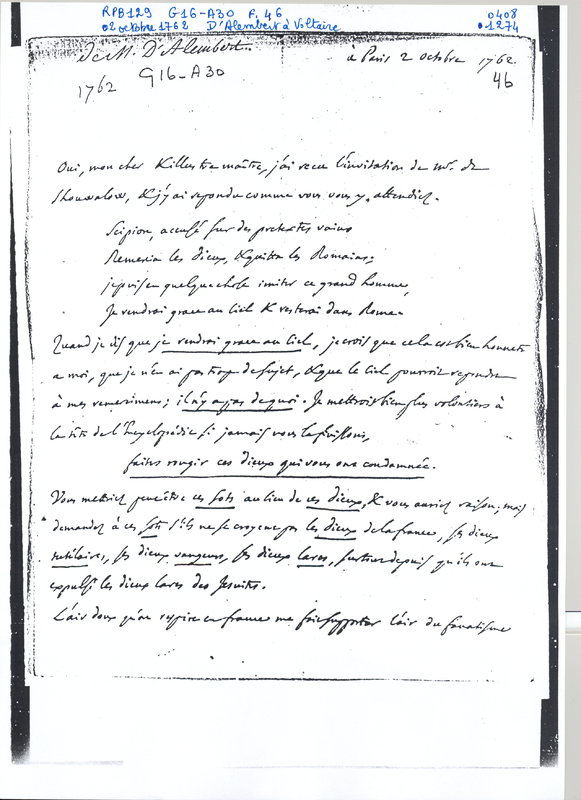 RPB129 G16-A30 F. 46 0408
02 octobre 1762 D'Alembert à Voltaire 01274
De M. D'Alembert.
à Paris 2 octobre 1762
1762 G16-A30 46
Oui, mon cher & illustre maître, j'ai recu l'invitation de mr. de
Shouvalow, & j'y ai repondu comme vous vous y attendiez.
Scipion, accusé sur des pretextes vains
Remercia les dieux, & quitta les Romains;
je puis en quelque chose imiter ce grand homme,
Je rendrai grace au Ciel & resterai dans Rome.
Quand je dis que je rendrai grace au Ciel, je crois que cela est bien honnete
a moi, que je n'en ai pas trop de sujet, & que le Ciel pourroit repondre
à mes remercimens; il n'y a pas de quoi. Je mettrois bien plus volontiers à
la tête de l'Encyclopédie si jamais nous la finissons,
faites rougir ces dieux qui vous ont condamnée.
Vous mettriez peutêtre ces sots au lieu de ces dieux, & vous auriez raison; mais
demandez à ces sots s'ils ne se croyent pas les dieux de la france, ses dieux
tutelaires, ses dieux vangeurs, ses dieux lares, surtout depuis qu'ils ont
expulsé les dieux lares des Jesuites.
L'air doux qu'on respire en france me fait supporter l'air du fanatisme